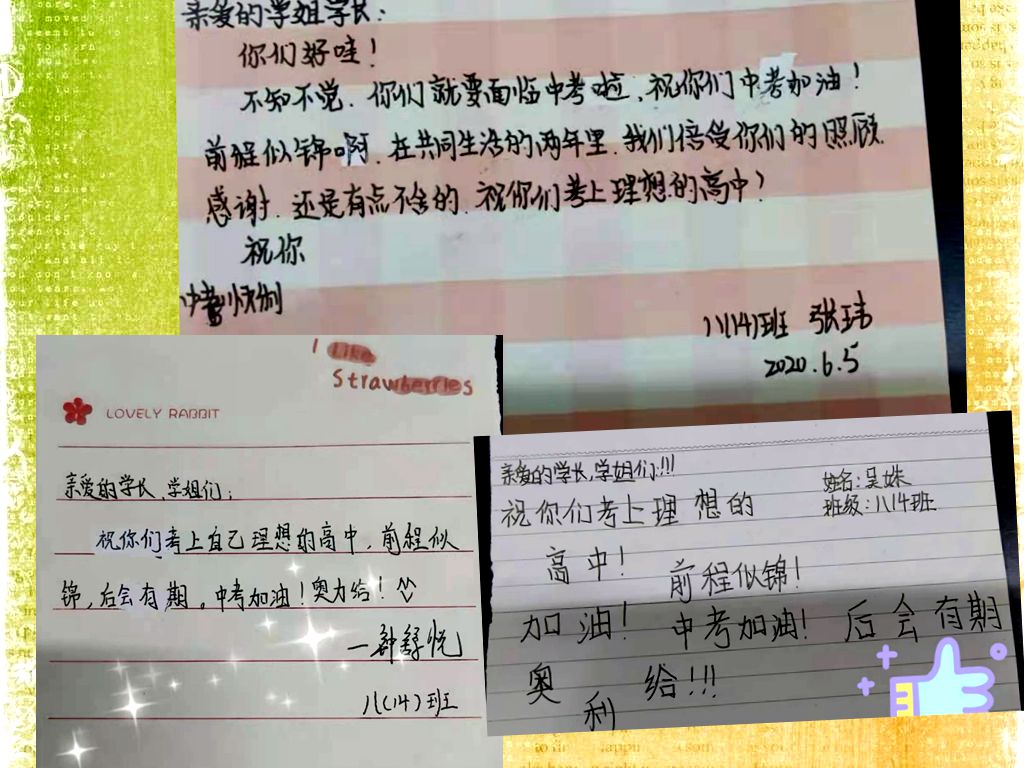 亲爱的学姐学长：
你们好哇！
不知不觉，你们就要面临中考啦，祝你们中考加油！
前程似锦啊，在共同生活的两年里，我们倍受你们的照顾
感谢，还是有点不舍的，祝你们考上理想的高中！
祝你
中考顺利
八(14)班 张玮
2020.6.5
I like
Strawberries
LOVELY RABBIT
亲爱的学长，学姐们：
祝你们考上自己理想的高中，前程似
锦，后会有期。中考加油！奥力给！
八(14)班
亲爱的学长，学姐们:!!!
姓名：吴姝
班级：八14班
祝你们考上理想的
高中！前程似锦！
加油！中考加油！后会有期
奥利给!!!